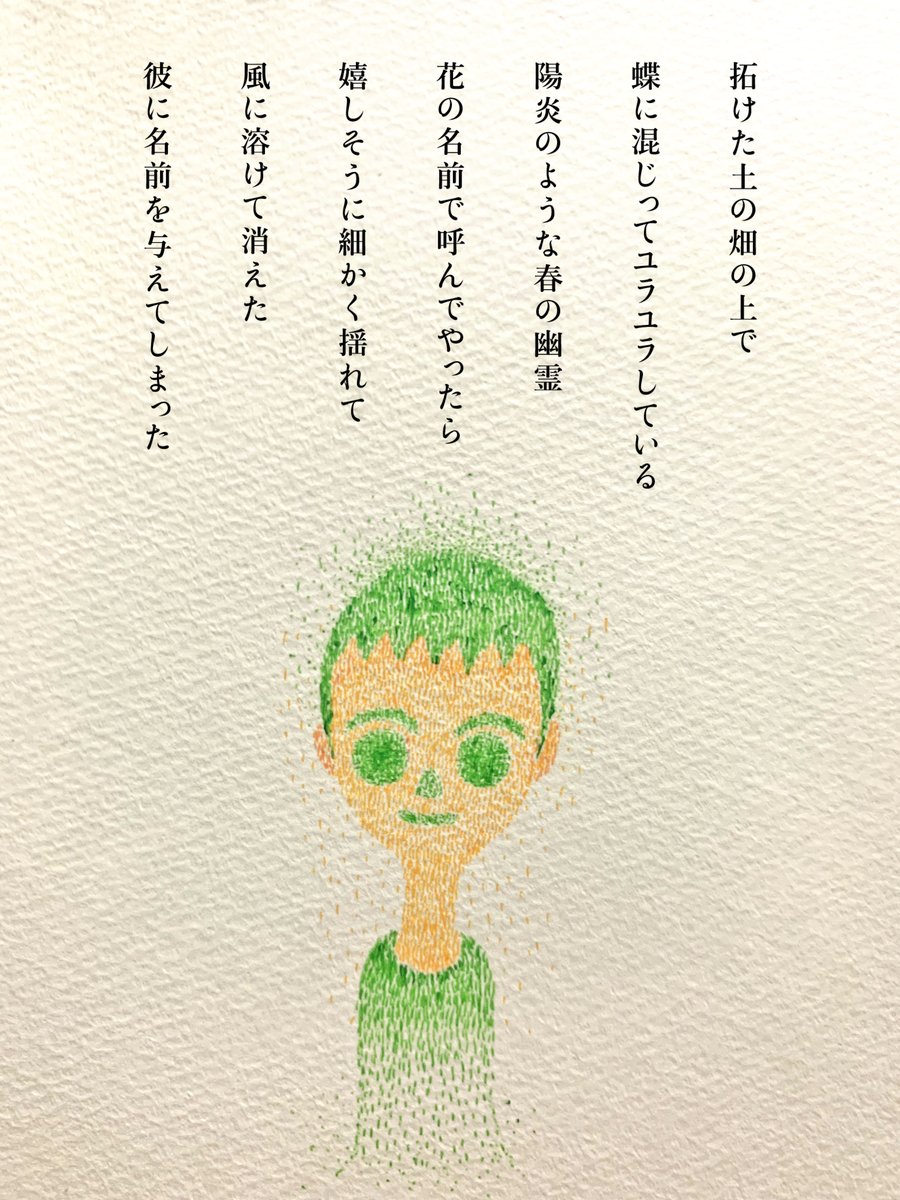 拓けた土の畑の上で
蝶に混じってユラユラしている
陽炎のような春の幽霊
花の名前で呼んでやったら
嬉しそうに細かく揺れて
風に溶けて消えた
彼に名前を与えてしまった